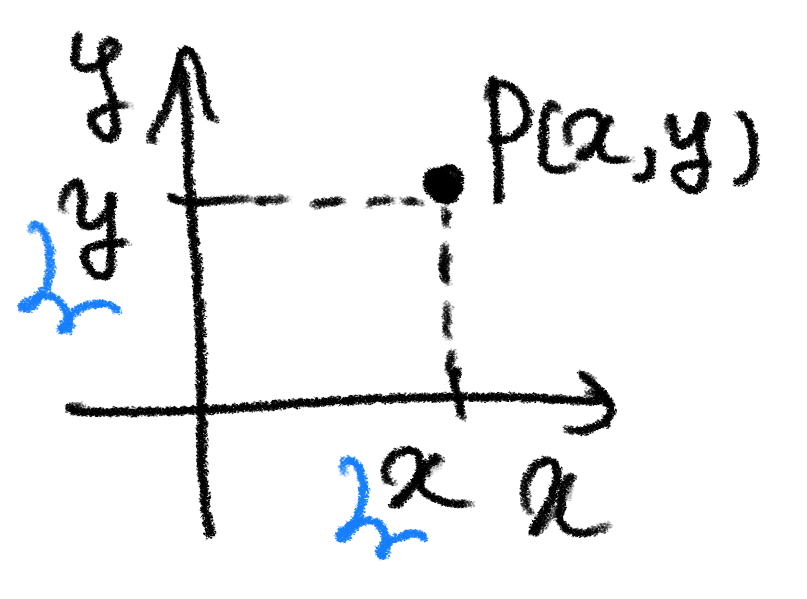 y
P(x,y)
y
x x